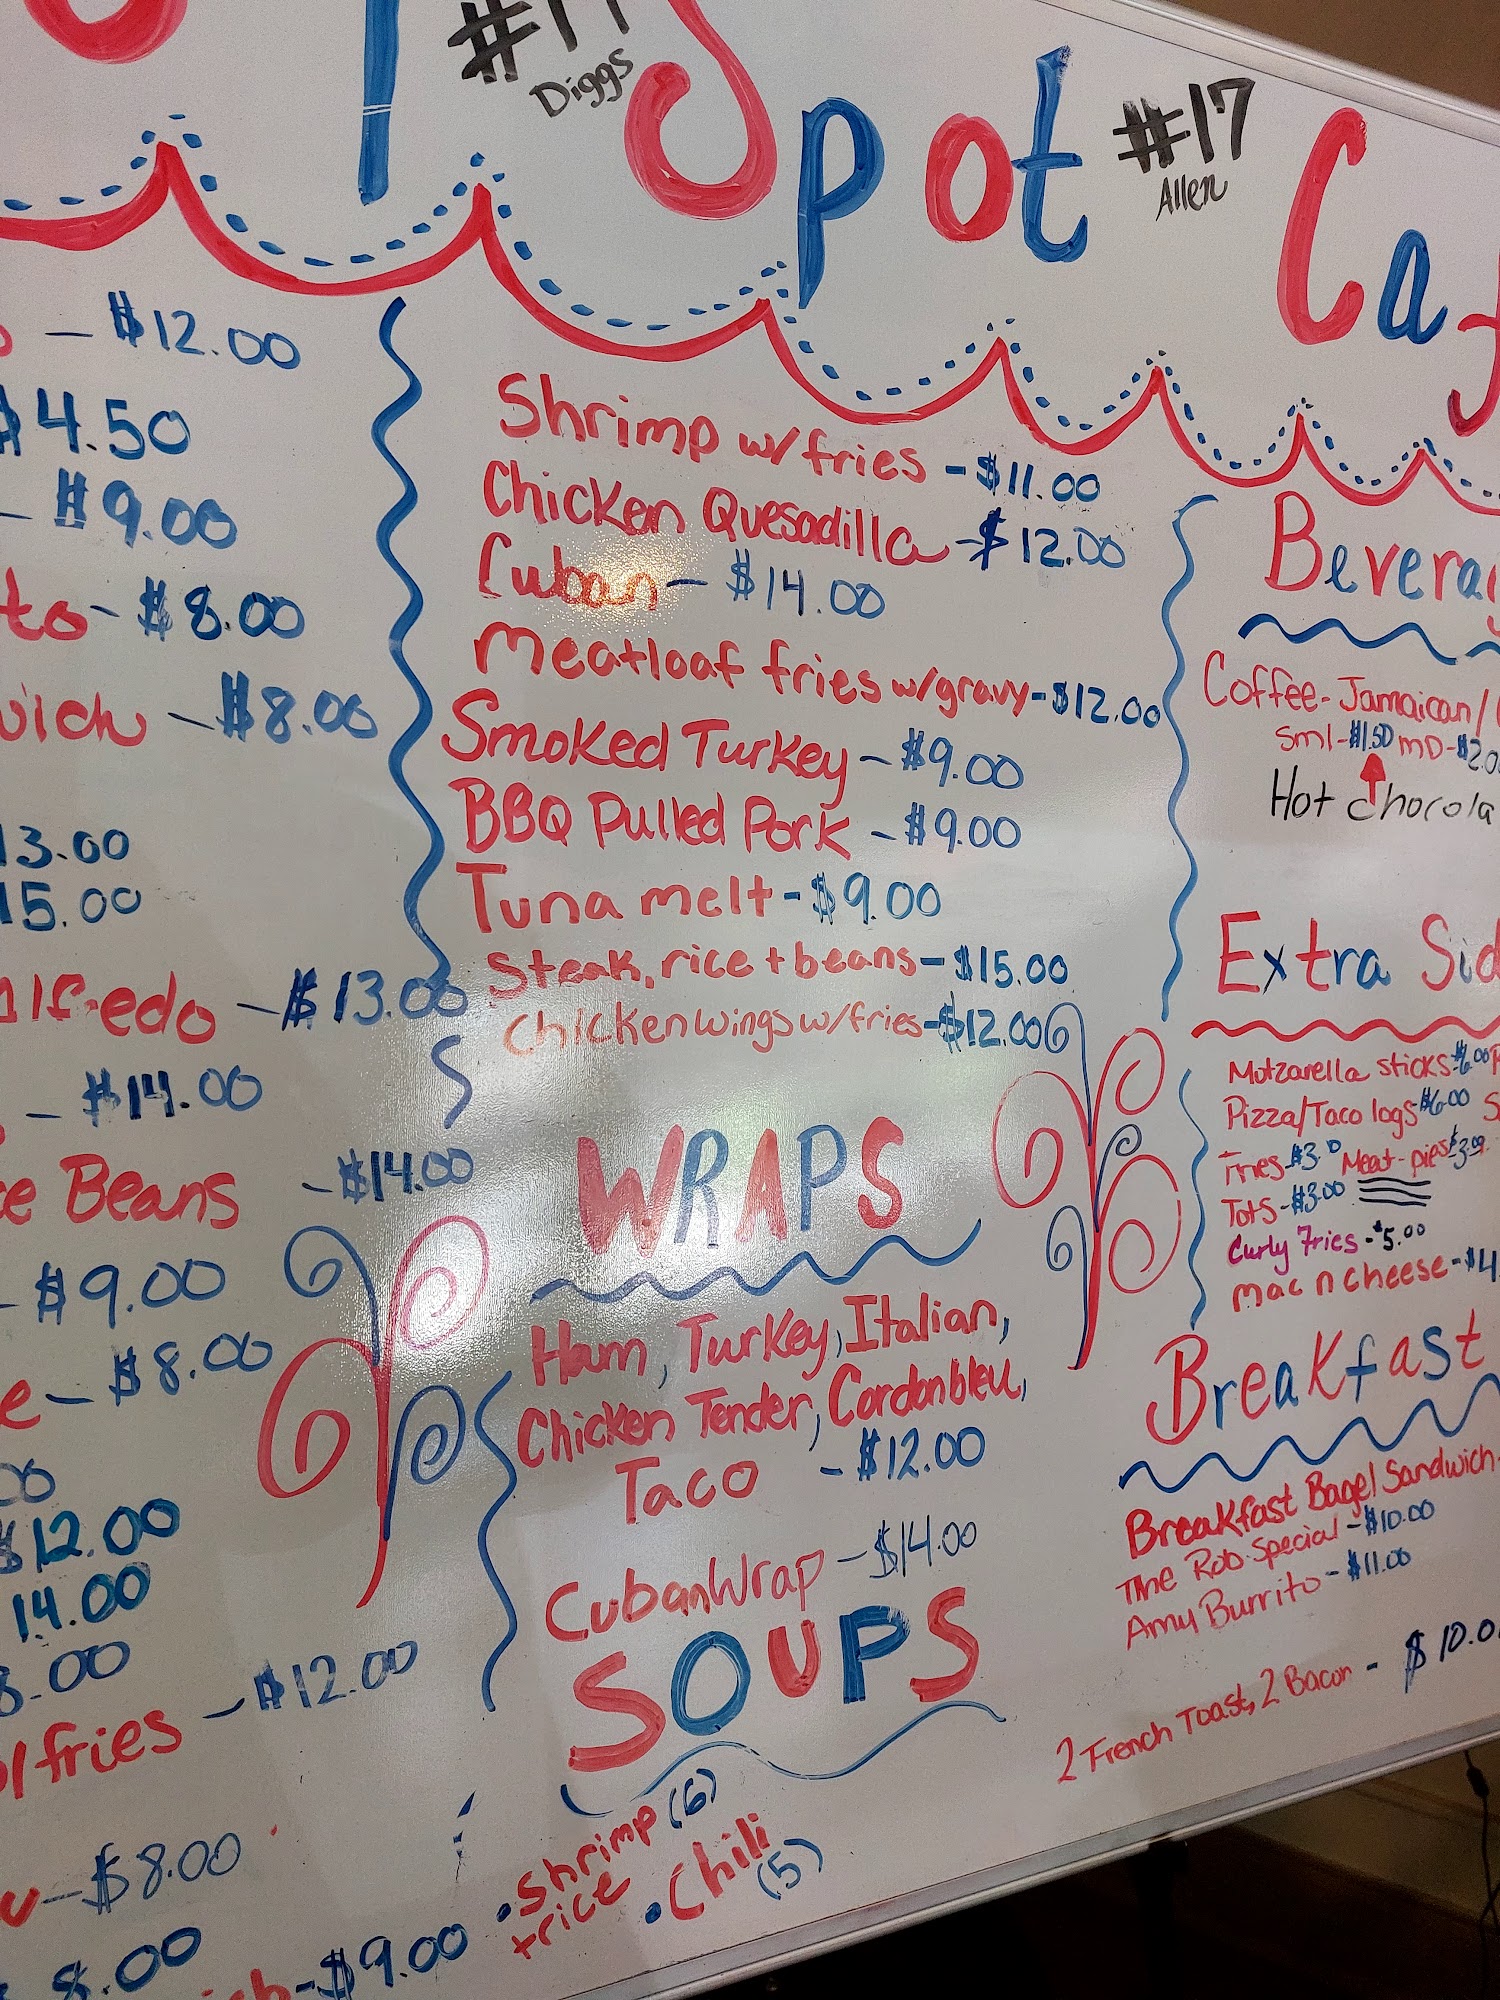 #17
Diggs
Spot
#17
Allen
$12.00
$4.50
$9.00
$8.00
$8.00
13.00
15.00
Alfredo - $13.00
- $14.00
Beans - $14.00
- $9.00
- $8.00
$12.00
14.00
/fries - $12.00
- $8.00
8.00
- $9.00
Shrimp w/fries - $11.00
Chicken Quesadilla - $12.00
Cuban - $14.00
Meatloaf fries w/gravy - $12.00
Smoked Turkey - $9.00
BBQ Pulled Pork - $9.00
Tuna melt - $9.00
Steak, rice + beans - $15.00
Chicken wings w/fries - $12.00
WRAPS
Ham, Turkey, Italian,
Chicken Tender, Cordonbleu,
Taco - $12.00
Cuban Wrap - $14.00
SOUPS
• Shrimp (6)
+ rice
• Chili
(5)
Coffee - Jamaican/
sml - $1.50 mD -
Hot
Extra
Motzarella sticks - $6.00
Pizza/Taco logs - $6.00
Fries - Meat-pies
Tots - $3.00
Curly Fries - $5.00
mac n cheese - $4
Breakfast
Breakfast Bagel Sandwich -
The Rob special - $10.00
Amy Burrito - $11.00
2 French Toast, 2 Bacon - $10.0